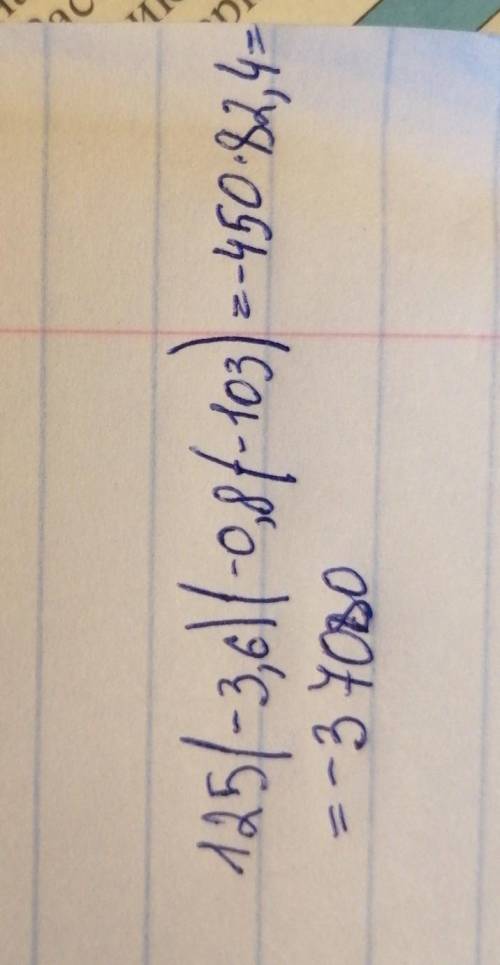 125(-3,6)(-0,8(-103)=-450·82,4=
=-37080